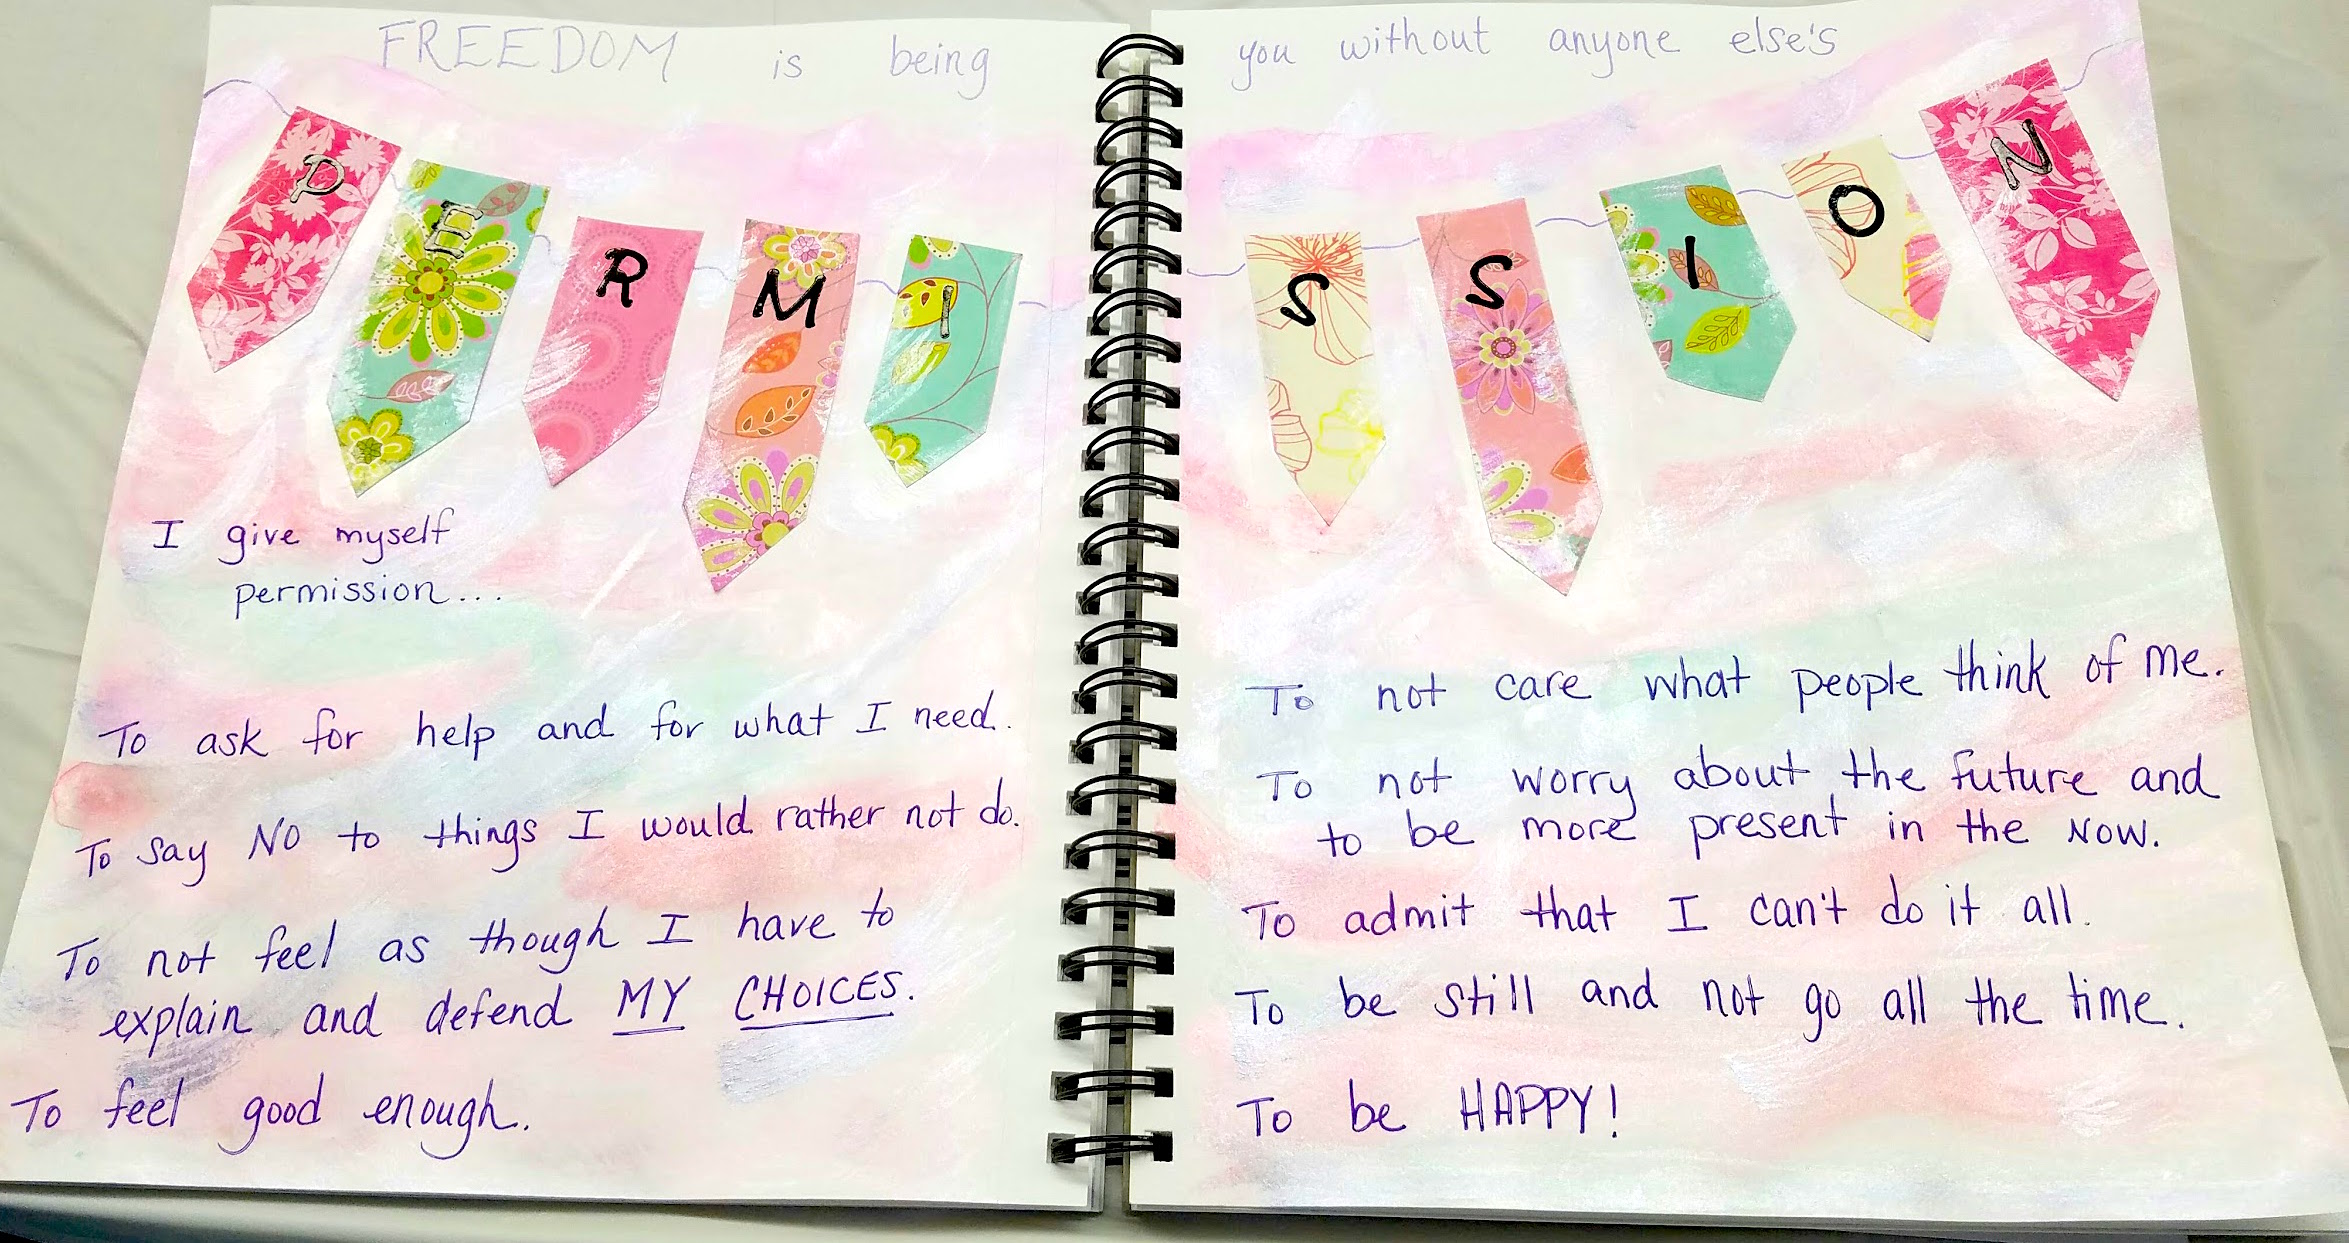 FREEDOM is being you without anyone else's
PERMISSION
I give myself
permission...
To ask for help and for what I need.
To say NO to things I would rather not do.
To not feel as though I have to
explain and defend MY CHOICES.
To feel good enough.
To not care what people think of me.
To not worry about the future and
to be more present in the NOW.
To admit that I can't do it all.
To be still and not go all the time.
To be HAPPY!